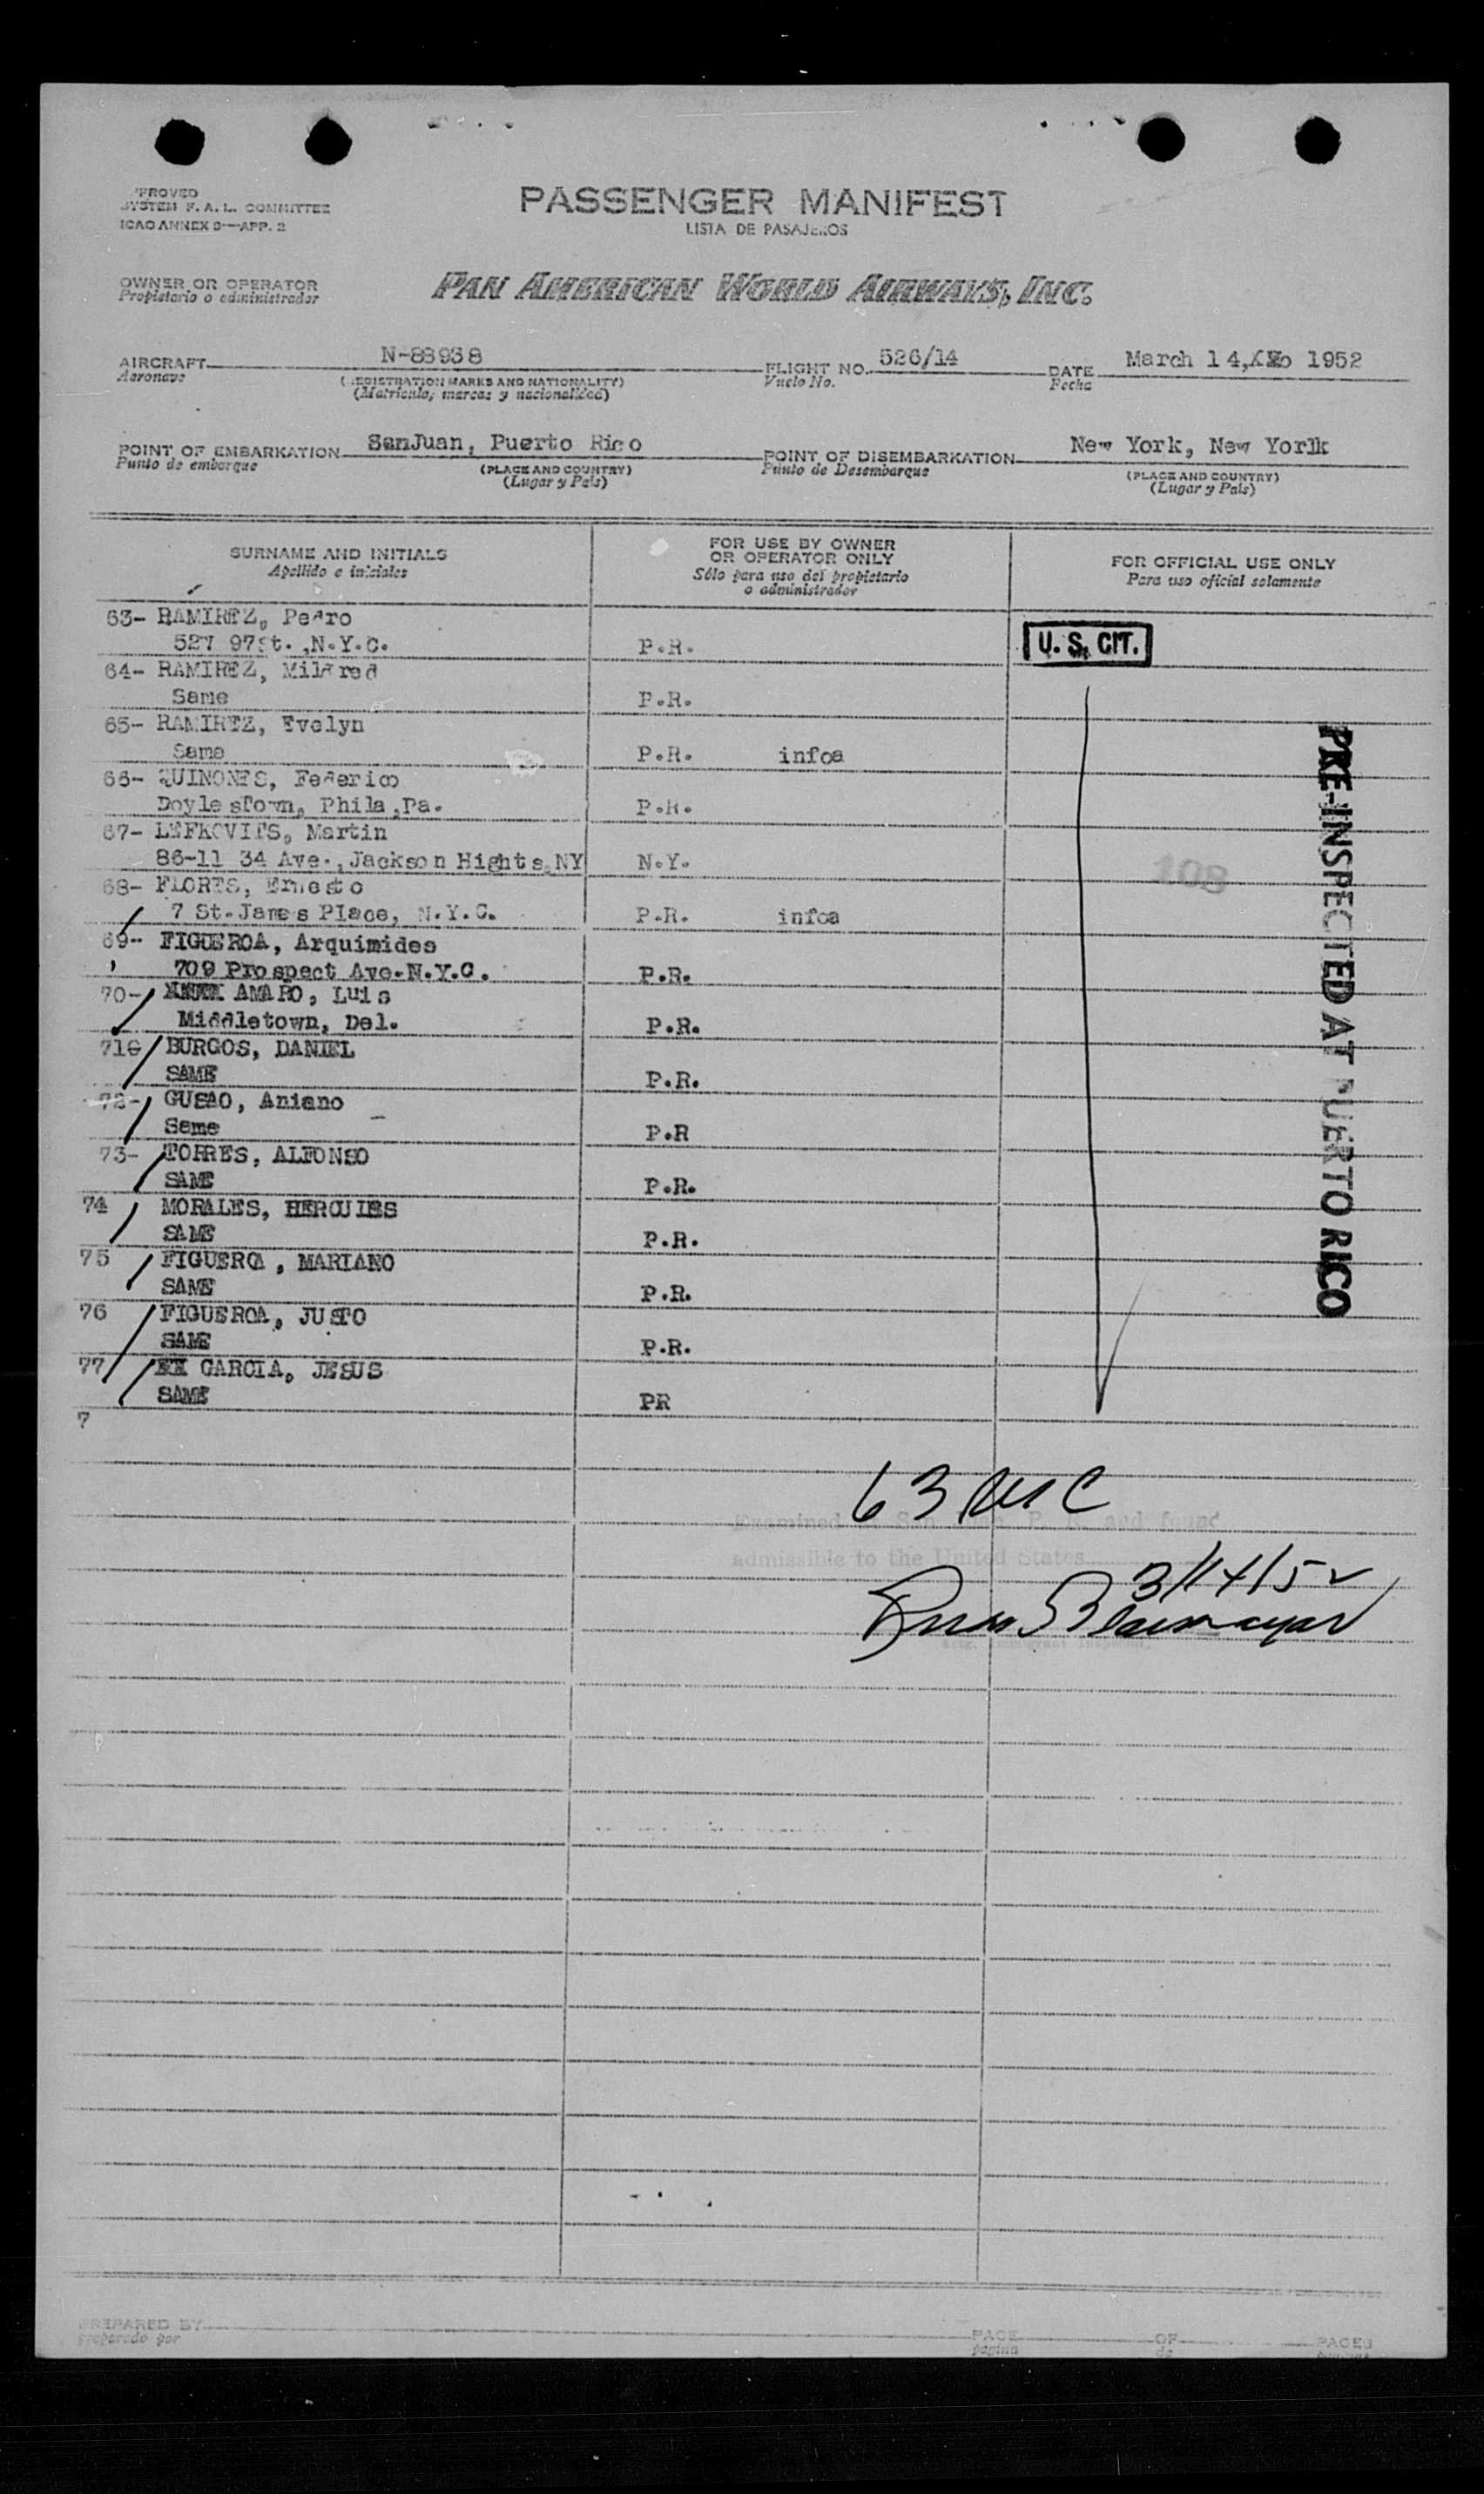 PROVED
SYSTEM F. A. L. COMMITTEE
ICAO ANNEX 9—APP. 2
PASSENGER MANIFEST
LISTA DE PASAJEROS
OWNER OR OPERATOR
Propietario o administrador
PAN AMERICAN WORLD AIRWAYS, INC.
AIRCRAFT N-88958 FLIGHT NO. 526/14 DATE March 14, 1952
Aeronave (REGISTRATION MARKS AND NATIONALITY) Vuelo No. Fecha
(Matricula, marcas y nacionalidad)
POINT OF EMBARKATION SanJuan, Puerto Rico POINT OF DISEMBARKATION New York, New York
Punto de embarque (PLACE AND COUNTRY) Punto de Desembarque (PLACE AND COUNTRY)
(Lugar y País) (Lugar y País)
SURNAME AND INITIALS
Apellido e iniciales
FOR USE BY OWNER
OR OPERATOR ONLY
Sólo para uso del propietario
o administrador
FOR OFFICIAL USE ONLY
Para uso oficial solamente
63- RAMIREZ, Pedro
527 97St. ,N.Y.C. P.R. U. S. CIT.
64- RAMIREZ, Mildred
Same P.R.
65- RAMIREZ, Evelyn
Same P.R. infoa
66- QUINONES, Federico
Doylestown, Phila,Pa. P.R.
67- LEFKOVITS, Martin
86-11 34 Ave., Jackson Hights,NY N.Y.
108
68- FLORES, Ernesto
7 St.James Place, N.Y.C. P.R. infoa
69- FIGUEROA, Arquimides
709 Prospect Ave.N.Y.C. P.R.
70- AMARO, Luis
Middletown, Del. P.R.
71 BURGOS, DANIEL
SAME P.R.
72- GUSAO, Aniano
Same P.R
73- TORRES, ALFONSO
SAME P.R.
74 MORALES, HERCULES
SAME P.R.
75 FIGUEROA, MARIANO
SAME P.R.
76 FIGUEROA, JUSTO
SAME P.R.
77 GARCIA, JESUS
SAME PR
7
PRE-INSPECTED AT PUERTO RICO
63 USC
Examined San Juan P. R. and found
admissible to the United States
3/14/52
Immigrant Inspector
PREPARED BY PAGE OF PAGES
preparado por página de